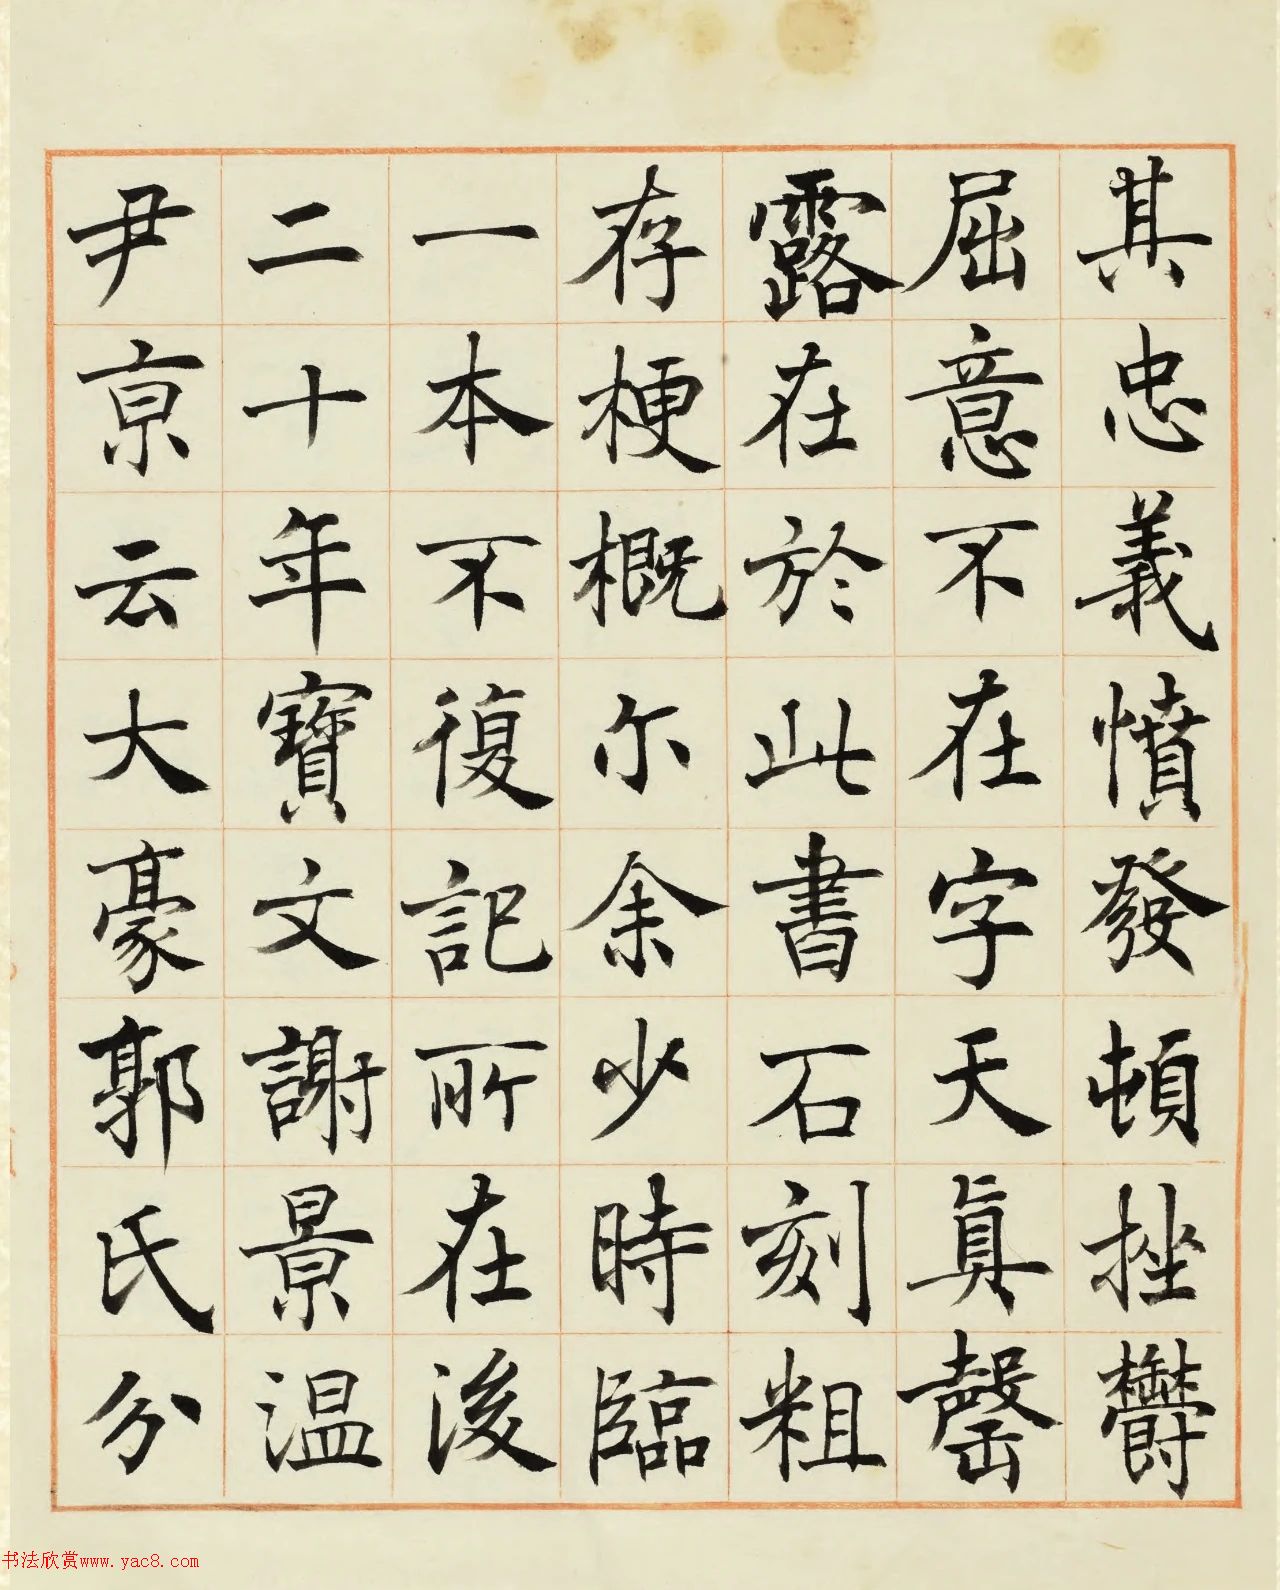 其忠義憤發頓挫鬱
屈意不在字天真罄
露在於此書石刻粗
存梗概尓余少時臨
一本不復記所在後
二十年寶文謝景温
尹亰云大豪郭氏分
书法欣赏www.yac8.com